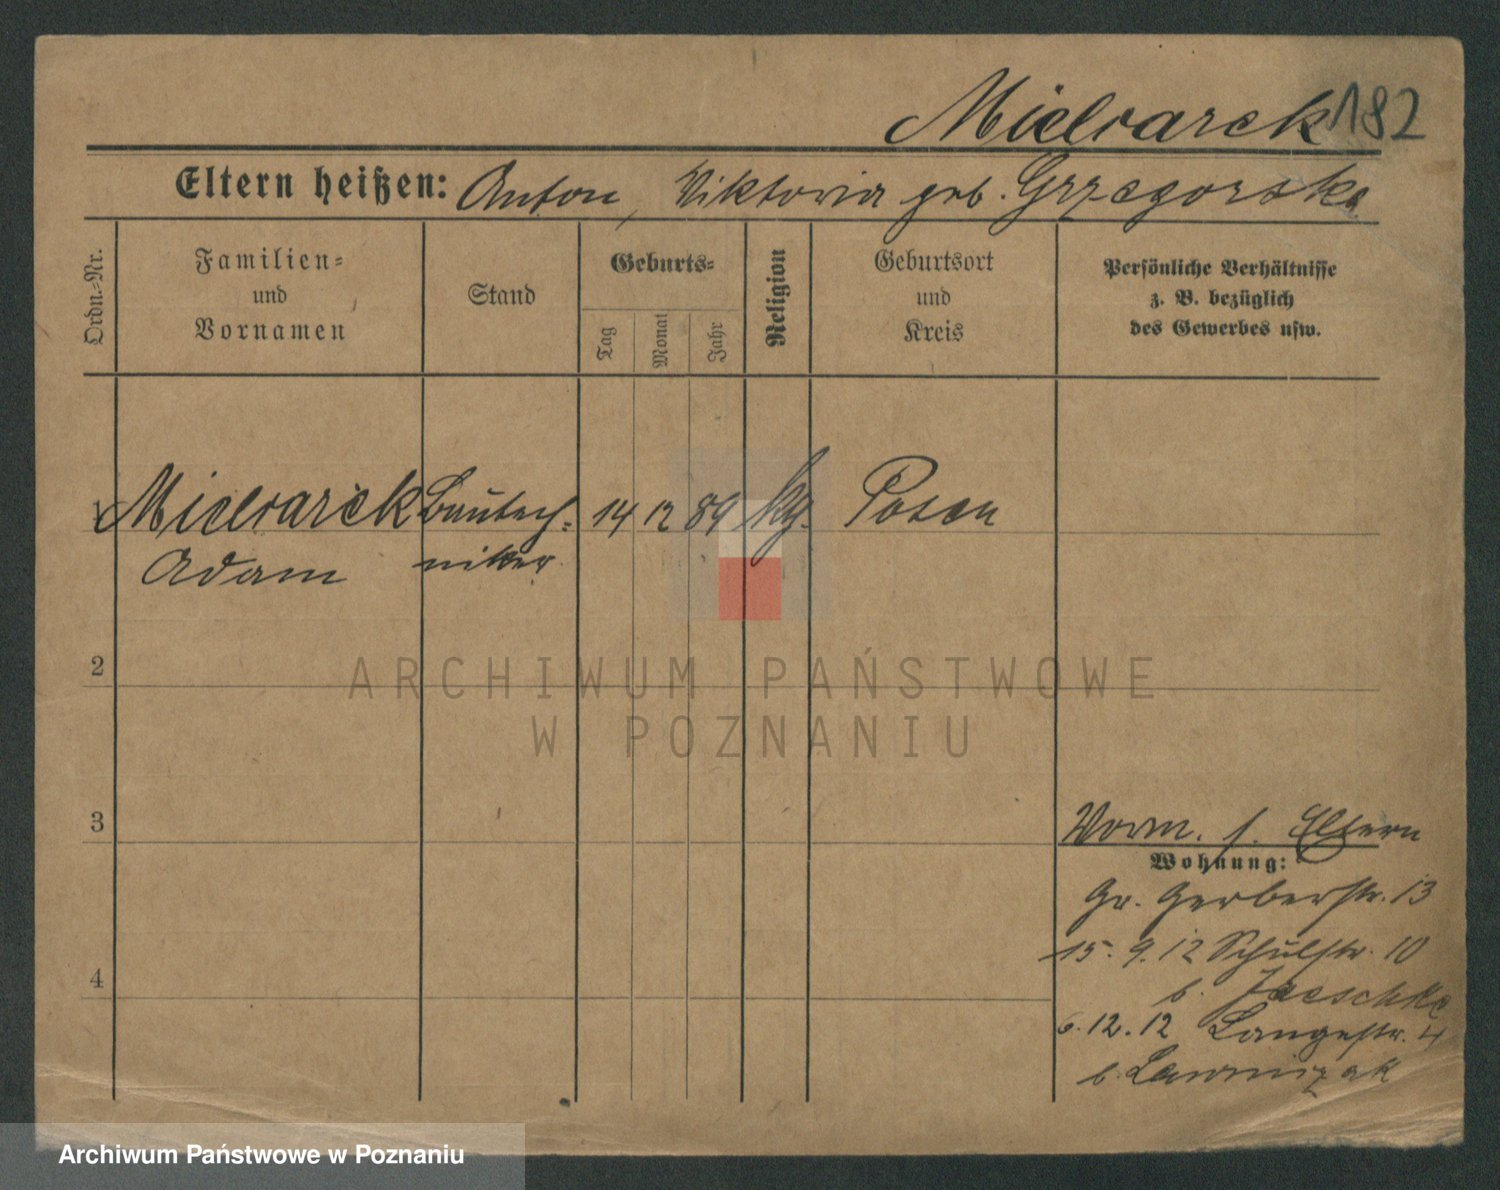 Mielcarek 182
Eltern heißen: Anton, Viktoria geb. Grzegorska
Ordn.-Nr.
Familien-
und
Vornamen
Stand
Geburts-
Tag
Monat
Jahr
Religion
Geburtsort
und
Kreis
Persönliche Verhältnisse
z. B. bezüglich
des Gewerbes usw.
1 Mielcarek Bautech- 14 12 89 kg. Posen
Adam niker
2
3
4
Vorm. s. Eltern
Wohnung:
Gr. Gerberstr. 13
15. 9. 12 Schulstr. 10
b. Jaeschke
6. 12. 12 Langestr. 4
b. Lawniczak
ARCHIWUM PAŃSTWOWE
W POZNANIU
Archiwum Państwowe w Poznaniu